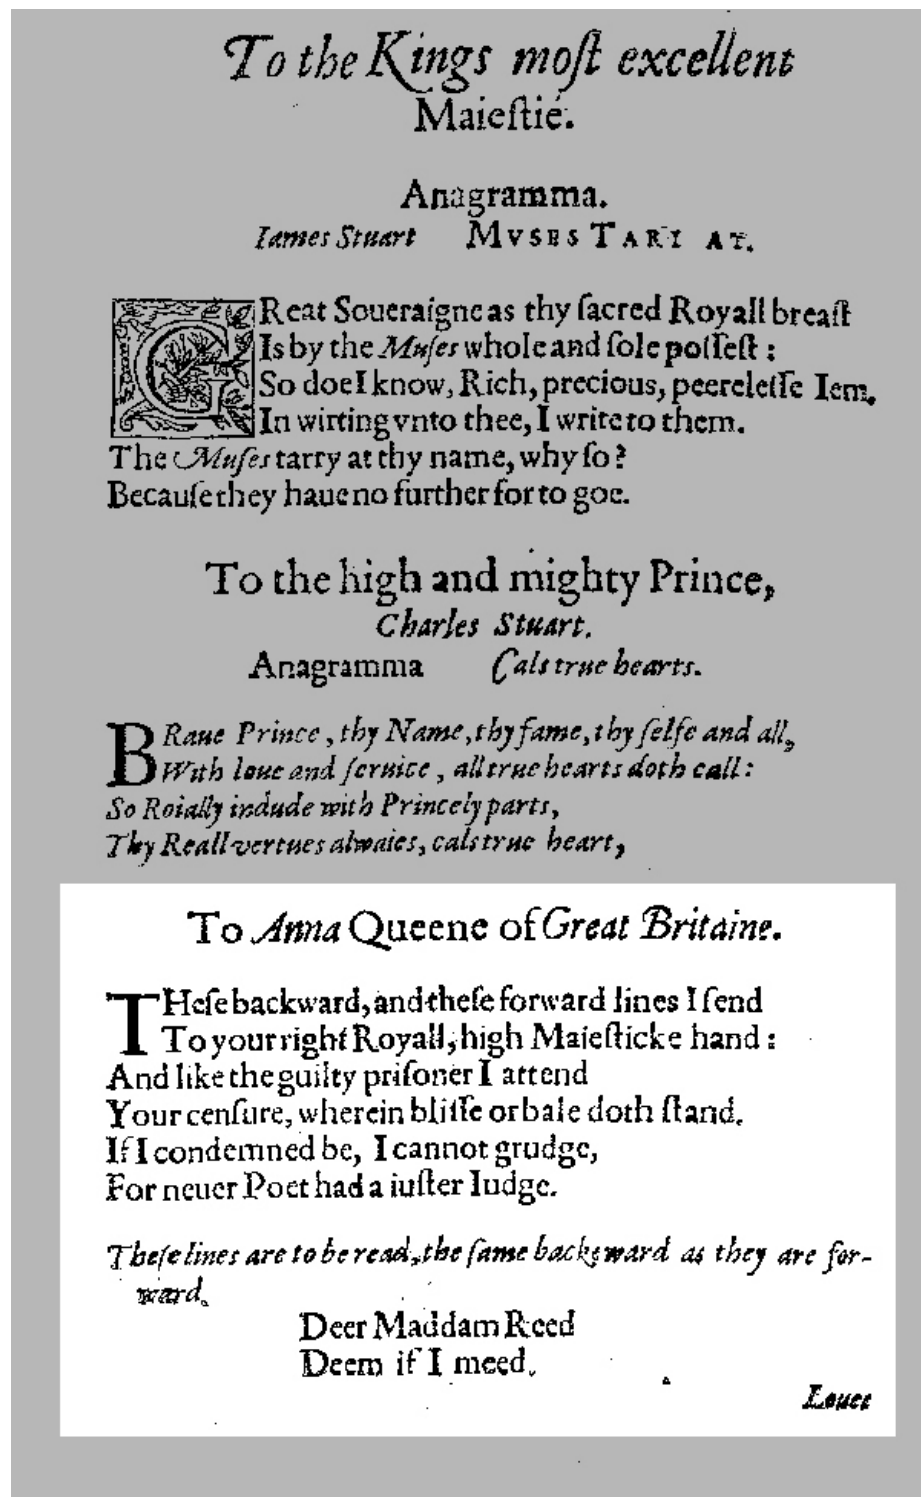 To the Kings moſt excellent
Maieſtie.
Anagramma.
Iames Stuart MVSES TARI AT.
GReat Soueraigne as thy ſacred Royall breaſt
Is by the Muſes whole and ſole poſſeſt :
So doe I know, Rich, precious, peereleſſe Iem,
In wirting vnto thee, I write to them.
The Muſes tarry at thy name, why ſo?
Becauſe they haue no further for to goe.
To the high and mighty Prince,
Charles Stuart.
Anagramma Cals true hearts.
BRaue Prince, thy Name, thy fame, thy ſelfe and all,
With loue and ſeruice, all true hearts doth call:
So Roially indude with Princely parts,
Thy Reall vertues alwaies, cals true heart,
To Anna Queene of Great Britaine.
THeſe backward, and theſe forward lines I ſend
To your right Royall, high Maieſticke hand :
And like the guilty priſoner I attend
Your cenſure, wherein bliſſe or bale doth ſtand.
If I condemned be, I cannot grudge,
For neuer Poet had a iuſter Iudge.
Theſe lines are to be read, the ſame backeward as they are for-
ward.
Deer Maddam Reed
Deem if I meed.
Louee